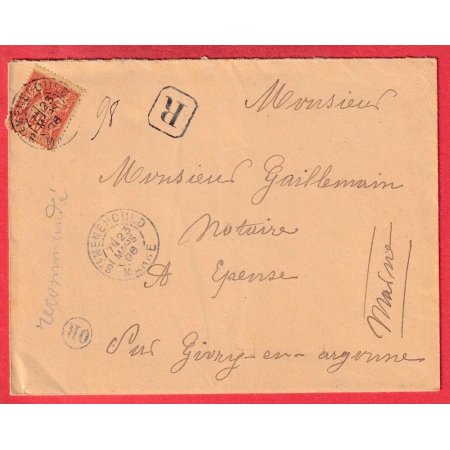 98
R
Monsieur
Monsieur Gaillemain
Notaire
A Epense
Marne
Par Givry-en-argonne
recommandé
OR
STE MENEHOULD
23
MARS
98
MARNE